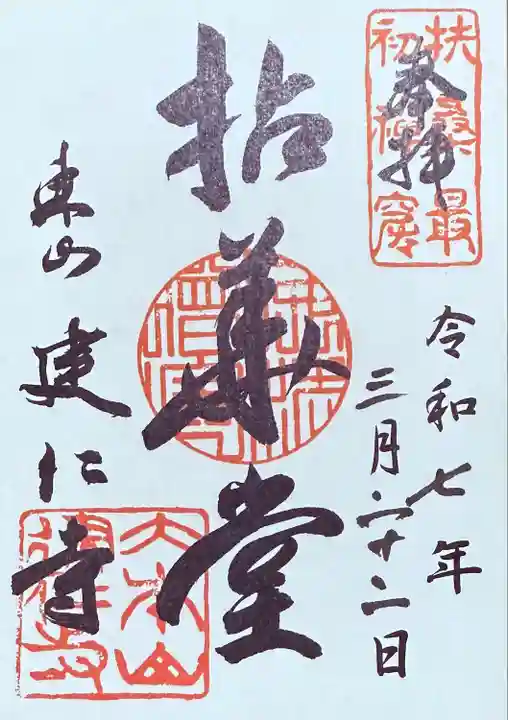 奉拝
扶桑最
初禅窟
令和七年
三月二十二日
拈華堂
東山 建仁寺